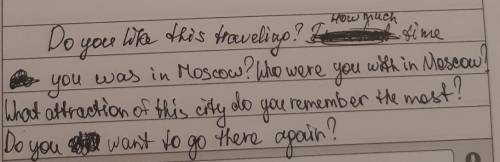 Do you like this traveling? How much time
you was in Moscow? Who were you with in Moscow?
What attraction of this city do you remember the most?
Do you want to go there again?